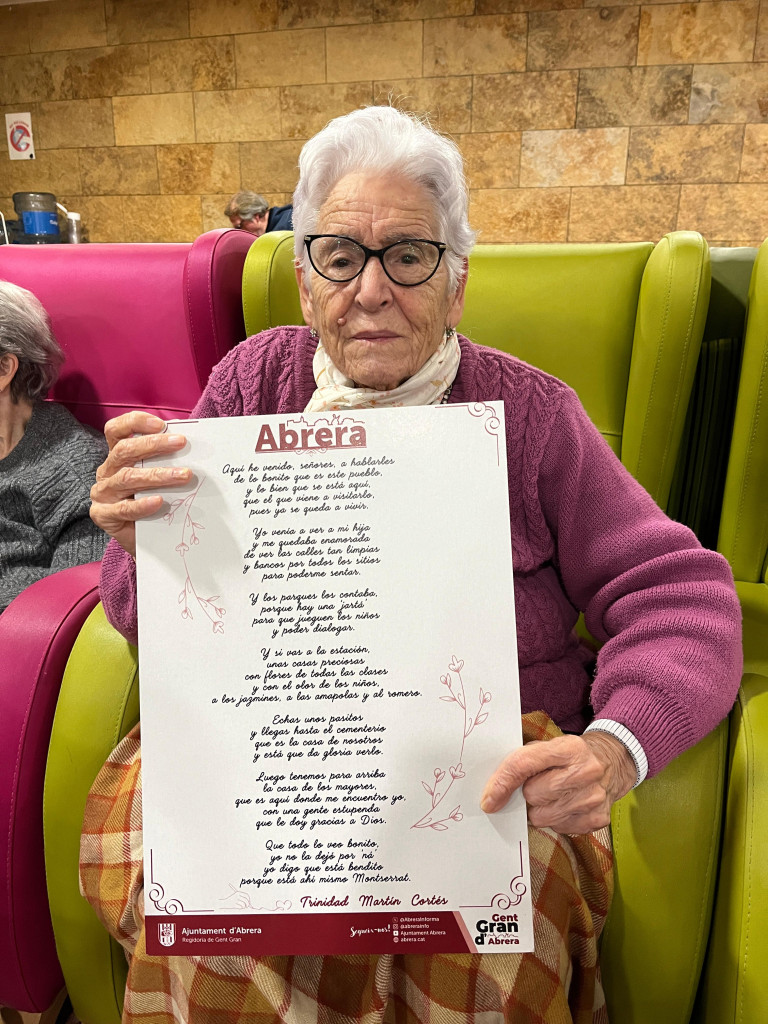 Abrera
Aquí he venido, señores, a hablarles
de lo bonito que es este pueblo,
y lo bien que se está aquí,
que el que viene a visitarlo,
pues ya se queda a vivir.
Yo venía a ver a mi hija
y me quedaba enamorada
de ver las calles tan limpias
y bancos por todos los sitios
para poderme sentar.
Y los parques los contaba,
porque hay una jartá
para que jueguen los niños
y poder dialogar.
Y si vas a la estación,
unas casas preciosas
con flores de todas las clases
y con el olor de los niños,
a los jazmines, a las amapolas y al romero.
Echas unos pasitos
y llegas hasta el cementerio
que es la casa de nosotros
y está que da gloria verlo.
Luego tenemos para arriba
la casa de los mayores,
que es aquí donde me encuentro yo,
con una gente estupenda
que le doy gracias a Dios.
Que todo lo veo bonito,
yo no la dejó por 'ná'
yo digo que está bendito
porque está ahí mismo Montserrat.
Trinidad Martín Cortés
Ajuntament d'Abrera
Regidoria de Gent Gran
Seguiu-nos!
@AbreraInforma
@abrerainfo
Ajuntament Abrera
abrera.cat
Gent
Gran
d'Abrera